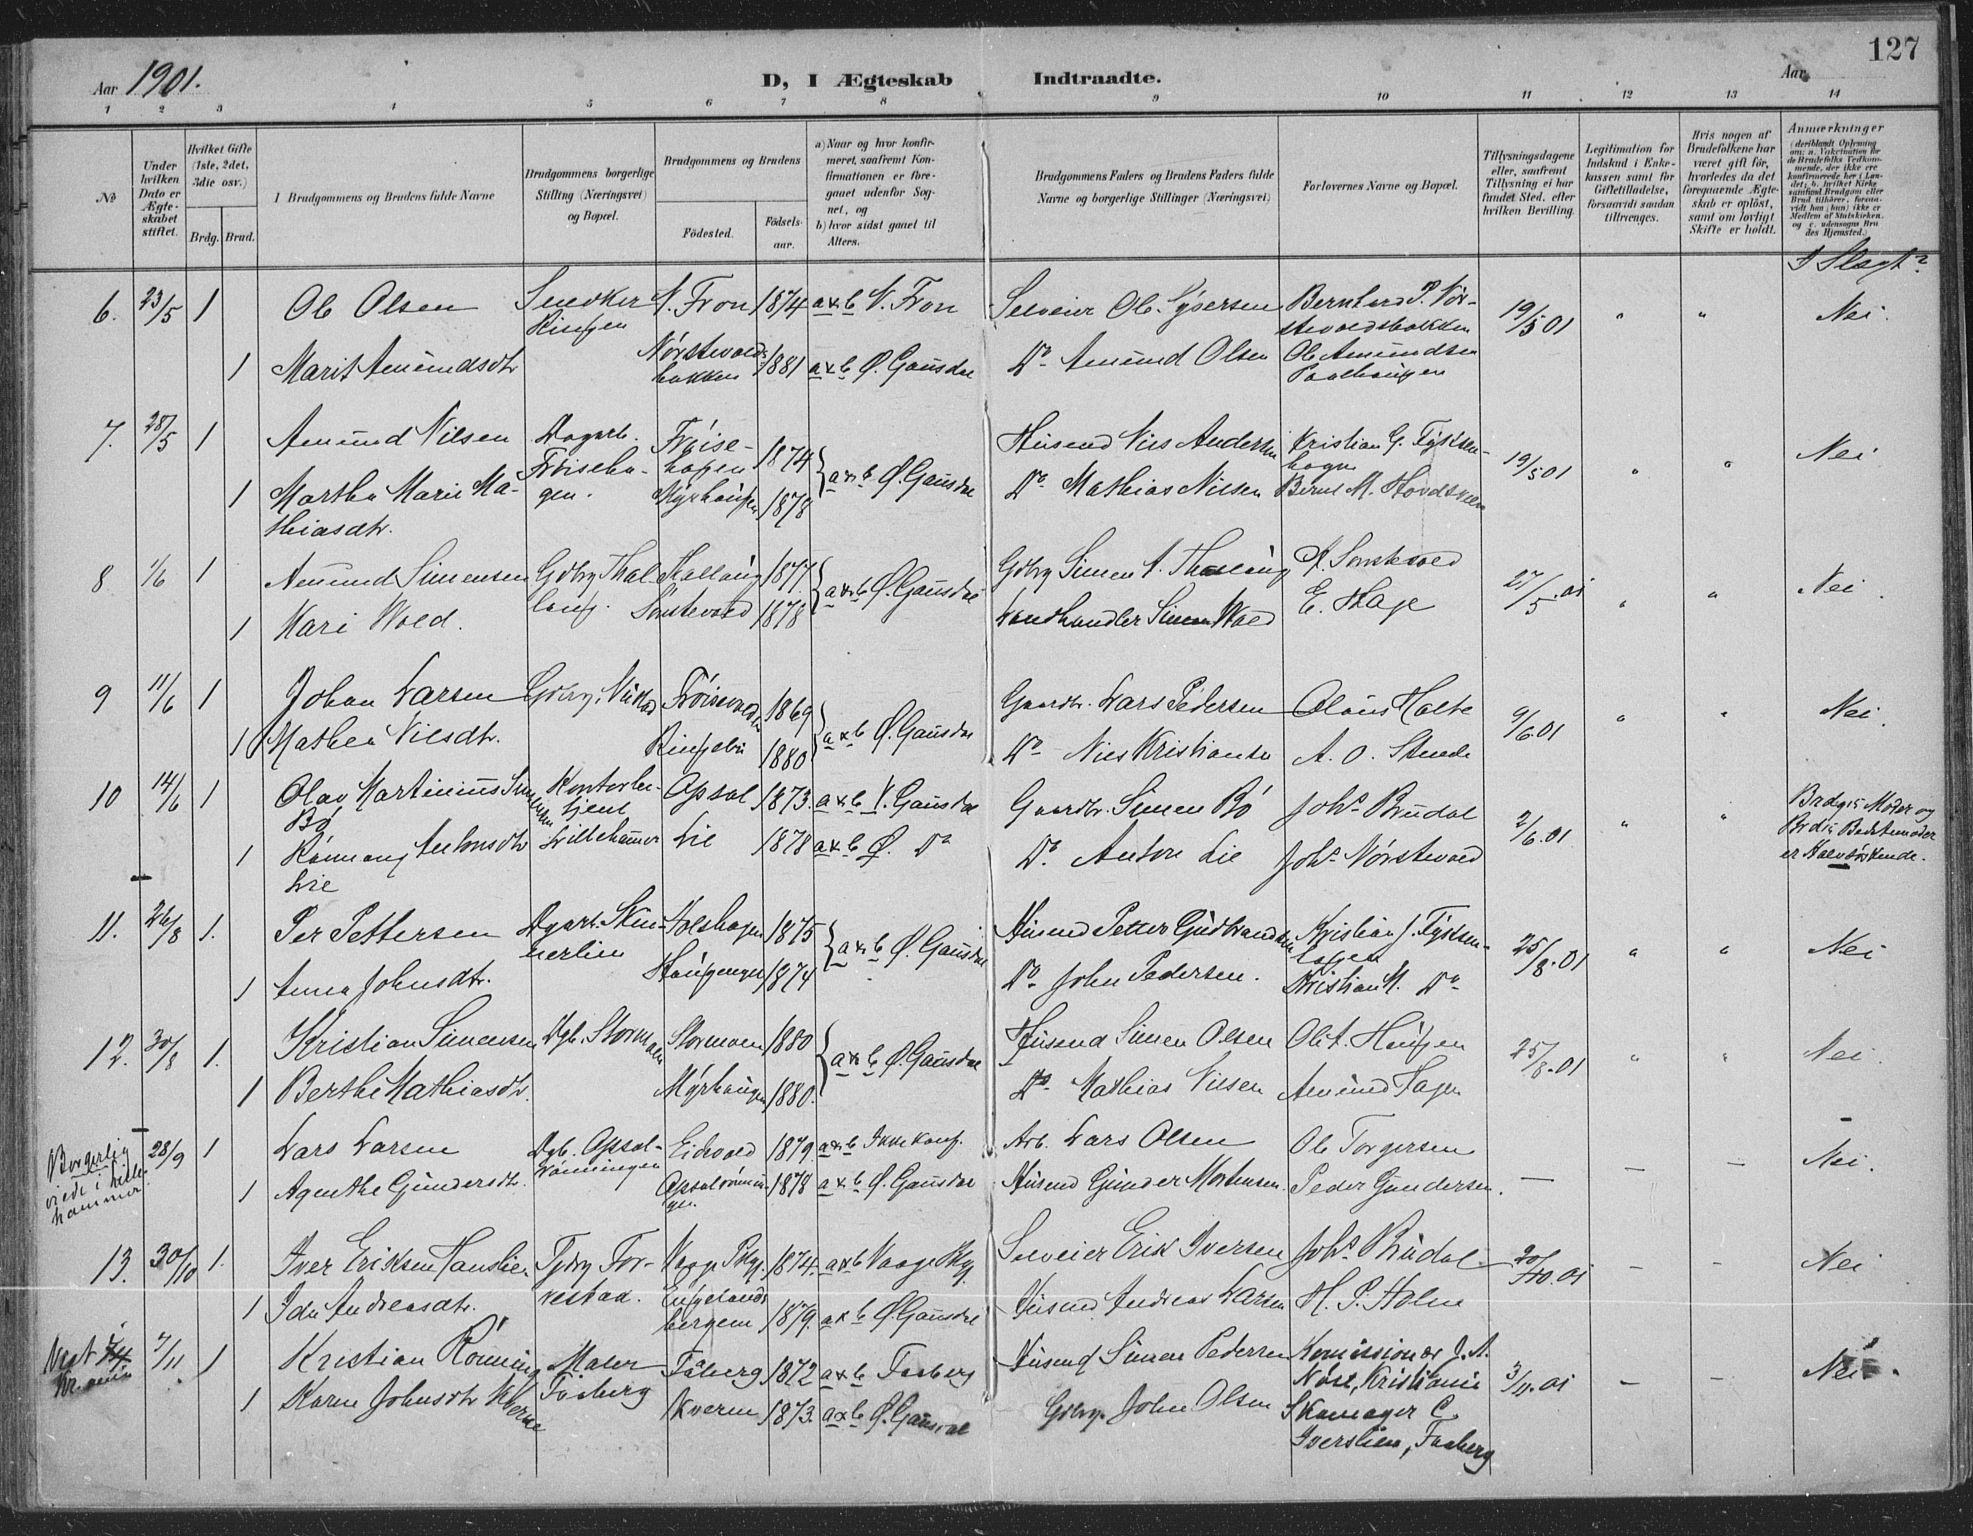 127
Aar 1901.
D, I Ægteskab Indtraadte.
Aar
1 2 3 4 5 6 7 8 9 10 11 12 13 14
№
Under hvilken Dato er Ægteskabet stiftet.
Hvilket Gifte (1ste, 2det, 3die osv.)
Brdg. Brud.
I Brudgommens og Brudens fulde Navne
Brudgommens borgerlige Stilling (Næringsvei) og Bopæl.
Brudgommens og Brudens
Födested.
Födsels-aar.
a) Naar og hvor konfirmeret, saafremt Konfirmationen er foregaaet udenfor Sognet, og
b) hvor sidst gaaet til Alters.
Brudgommens Faders og Brudens Faders fulde Navne og borgerlige Stillinger (Næringsvei)
Forlovernes Navne og Bopæl.
Tillysningsdagene eller, saafremt Tillysning ei har fundet Sted, efter hvilken Bevilling.
Legitimation for Indskud i Enkekassen samt for Giftetilladelse, forsaavidt saadan tiltrænges.
Hvis nogen af Brudefolkene har været gift för, hvorledes da det foregaaende Ægteskab er oplöst, samt om lovligt Skifte er holdt.
Anmærkninger
I Slægt?
6. 23/5 1 Ole Olsen Snedker N. Fron 1874 a & b N. Fron Selveier Ole Syversen Bernhard P. Nör- 19/5 01 " " Nei
Ringen stevoldsbakken
1 Marit Amundsdtr Nörstevolds- 1881 a & b Ø. Gausdal Do Amund Olsen Ole Amundsen
bakken Paalhaugen
7. 28/5 1 Amund Nilsen Dagarb. Fröise- 1874 a & b Ø. Gausdal Husmd Nils Andersen Kristian G. Fyksen- 19/5 01 " " Nei
Fröiseha- hagen hagen
1 Martha Marie Ma- gen. Myrhaugen 1878 Do Mathias Nilsen Bernt M.
thiasdtr.
8 1/6 1 Amund Simensen Gdbr Thal- 1877 a & b Ø. Gausdal Gdbr Simen A. A. Sönstevold 27/5.01 " " Nei
laug. Sönstevold
1 Kari Wold. 1878 Landhandler Simen Wold E. Hage
9 11/6 1 Johan Larsen Gdbr. Fröisevolden 1869 a & b Ø. Gausdal Gaardbr. Lars Pedersen Olaus Holte 9/6.01 " " Nei.
1 Mathea Nilsdtr. Ringebu 1880 Do Nils Kristiansen A. O. Steude
10 14/6 1 Olav Martinius Simensen Kontorbe- Opsal 1873. a & b V. Gausdal Gaardbr. Simen Bö Johs Brudal 2/6.01 " " Brdgs Moder og
Bö tjent Brds Bedstemoder
1 Rönnaug Antonsdtr Lillehammer Lie 1878 a & b Ø. Do Do Anton Lie Johs Nörstevold er Halvsöskende.
Lie
11. 26/8 1. Per Pettersen Dgarb. Skin- Holshagen 1875 a & b Ø. Gausdal Husmd Petter Gudbrandsen Kristian J. Fyksen- 25/8.01 " " Nei
nerlien hagen
1 Anna Johnsdtr. Haugengen 1874 Do John Pedersen. Kristian M. Do
12. 30/8 1. Kristian Simensen Dgb. Stormoen Stormoen 1880 a & b Ø. Gausdal Husmd Simen Olsen Ole A. Haugen 25/8.01 " " Nei.
1 Berthe Mathiasdtr. Myrhaugen 1880. Do Mathias Nilsen Amund Hagen
Borgerlig viede i Lillehammer 28/9 1 Lars Larsen Dgb. Opsal- Eidsvold 1879. a & b Ikke konf. Arb. Lars Olsen Ole Torgersen – – – Nei.
rönningen
1 Agnethe Gundersdtr. Opsalrönnin- 1878 a & b Ø. Gausdal Husmd Gunder Mortensen Peder Gundersen.
gen.
13. 30/10 1. Iver Eriksen Hanslien Gdbr For- Vaage Pgj. 1874. a & b Vaage Pgj Selveier Erik Iversen Johs Brudal 20/10.01 – – Nei
1 Ida Andreasdtr. restad. Engelands- 1879. a & b Ø. Gausdal Husmd Andreas Larsen H. P. Holm
bergem
7/11 1 Kristian Rönning Maler Faaberg 1872 a & b Faaberg Husmd Simen Pedersen Komissionær J. A. 3/11.01 – – Nei.
Kristiania
1 Karen Johnsdtr Kverne Faaberg Kvern 1873. a & b Ø. Gausdal Gdbr. John Olsen Skomager C.
Iverslien, Faaberg